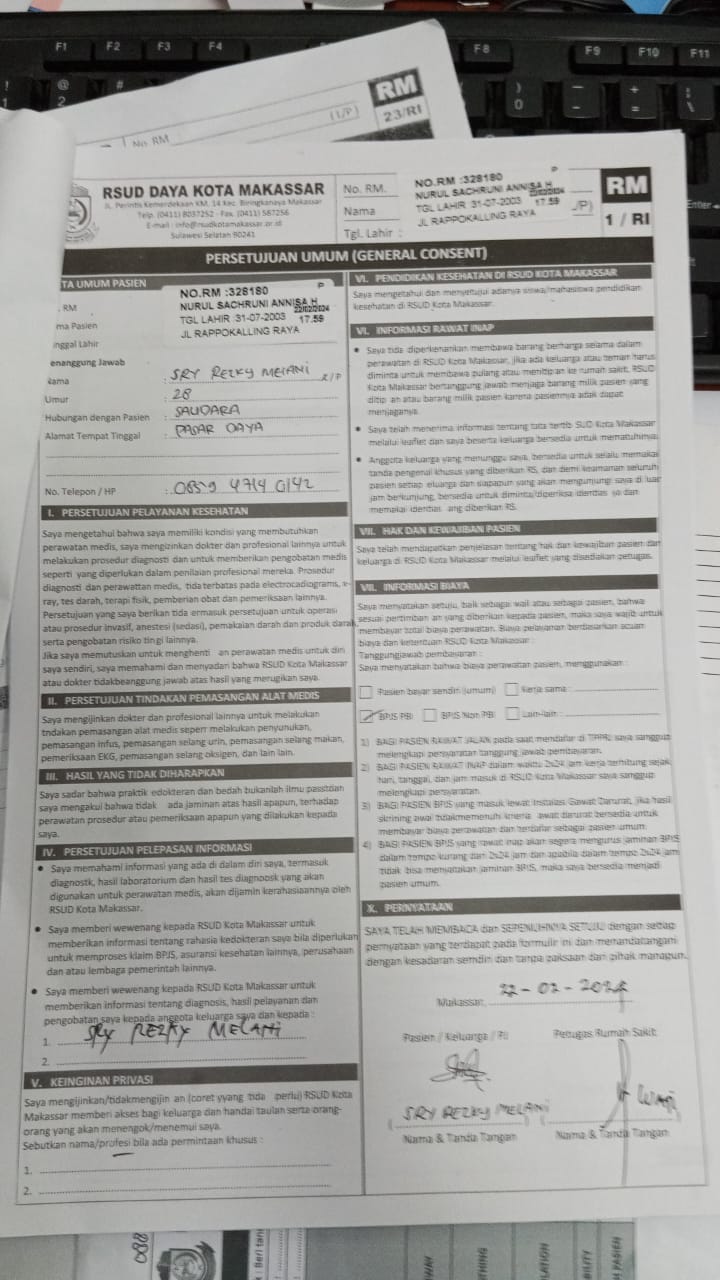 F1 F2 F3 F4 F8 F9 F10 F11
RM
23/RI
(L/P)
No. RM
Enter
RSUD DAYA KOTA MAKASSAR
JL. Perintis Kemerdekaan KM. 14 Kec. Biringkanaya Makassar
Telp. (0411) 8037252 - Fax. (0411) 587256
E-mail : info@rsudkotamakassar.or.id
Sulawesi Selatan 90241
No. RM.
Nama
Tgl. Lahir :
NO.RM :328180 P
NURUL SACHRUNI ANNISA H
TGL LAHIR 31-07-2003 17.59
JL RAPPOKALLING RAYA
/P)
RM
1 / RI
PERSETUJUAN UMUM (GENERAL CONSENT)
TA UMUM PASIEN
RM
ma Pasien
nggal Lahir
NO.RM :328180 P
NURUL SACHRUNI ANNISA H
22/02/2024
TGL LAHIR :31-07-2003 17.59
JL RAPPOKALLING RAYA
enanggung Jawab
Nama : SRY REZKY MELANI L/P
Umur : 28
Hubungan dengan Pasien : SAUDARA
Alamat Tempat Tinggal : PASAR DAYA
No. Telepon / HP : 0859 4714 0142
I. PERSETUJUAN PELAYANAN KESEHATAN
Saya mengetahui bahwa saya memiliki kondisi yang membutuhkan
perawatan medis, saya mengizinkan dokter dan profesional lainnya untuk
melakukan prosedur diagnosti dan untuk memberikan pengobatan medis
seperti yang diperlukan dalam penilaian profesional mereka. Prosedur
diagnosti dan perawattan medis, tida terbatas pada electrocadiograms, x-
ray, tes darah, terapi fisik, pemberian obat dan pemeriksaan lainnya.
Persetujuan yang saya berikan tida ermasuk persetujuan untuk operasi
atau prosedur invasif, anestesi (sedasi), pemakaian darah dan produk darah
serta pengobatan risiko tingi lainnya.
Jika saya memutuskan untuk menghenti an perawatan medis untuk diri
saya sendiri, saya memahami dan menyadari bahwa RSUD Kota Makassar
atau dokter tidakbeanggung jawab atas hasil yang merugikan saya.
II. PERSETUJUAN TINDAKAN PEMASANGAN ALAT MEDIS
Saya mengijinkan dokter dan profesional lainnya untuk melakukan
tndakan pemasangan alat medis seperr melakukan penyunukan,
pemasangan infus, pemasangan selang urin, pemasangan selang makan,
pemeriksaan EKG, pemasangan selang oksigen, dan lain lain.
III. HASIL YANG TIDAK DIHARAPKAN
Saya sadar bahwa praktik edokteran dan bedah bukanlah ilmu passtdan
saya mengakui bahwa tidak ada jaminan atas hasil apapun, terhadap
perawatan prosedur atau pemeriksaan apapun yang dilakukan kepada
saya.
IV. PERSETUJUAN PELEPASAN INFORMASI
• Saya memahami informasi yang ada di dalam diri saya, termasuk
diagnostk, hasil laboratorium dan hasil tes diagnoosk yang akan
digunakan untuk perawatan medis, akan dijamin kerahasiaannya oleh
RSUD Kota Makassar.
• Saya memberi wewenang kepada RSUD Kota Makassar untuk
memberikan informasi tentang rahasia kedokteran saya bila diperlukan
untuk memproses klaim BPJS, asuransi kesehatan lainnya, perusahaan
dan atau lembaga pemerintah lainnya.
• Saya memberi wewenang kepada RSUD Kota Makassar untuk
memberikan informasi tentang diagnosis, hasil pelayanan dan
pengobatan saya kepada anggota keluarga saya dan kepada :
1. SRY REZKY MELANI
2.
V. KEINGINAN PRIVASI
Saya mengijinkan/tidakmengijin an (coret yyang tida perlu) RSUD Kota
Makassar memberi akses bagi keluarga dan handai taulan serta orang-
orang yang akan menengok/menemui saya.
Sebutkan nama/profesi bila ada permintaan khusus :
1.
2.
VI. PENDIDIKAN KESEHATAN DI RSUD KOTA MAKASSAR
Saya mengetahui dan menyetujui adanya siswa/mahasiswa pendidikan
kesehatan di RSUD Kota Makassar.
VI. INFORMASI RAWAT INAP
• Saya tida diperkenankan membawa barang berharga selama dalam
perawatan di RSUD Kota Makassar, jika ada keluarga atau teman harus
diminta untuk membawa pulang atau menitip an ke rumah sakit. RSUD
Kota Makassar bertanggung jawab menjaga barang milik pasien yang
ditip an atau barang milik pasien karena pasiennya adak dapat
menjaganya.
• Saya telah menerima informasi tentang tata tertib SUD Kota Makassar
melalui leaflet dan saya beserta keluarga bersedia untuk mematuhinya.
• Anggota keluarga yang menunggu saya, bersedia untuk selalu memakai
tanda pengenal khusus yang diberikan RS, dan demi keamanan seluruh
pasien setiap eluarga dan siapapun yang akan mengunjungi saya di luar
jam berkunjung, bersedia untuk diminta/diperiksa identitas ya dan
memakai identitas ang diberikan RS.
VII. HAK DAN KEWAJIBAN PASIEN
Saya telah mendapatkan penjelasan tentang hak dan kewajiban pasien dan
keluarga di RSUD Kota Makassar melalui leaflet yang disediakan petugas.
VII. INFORMASI BIAYA
Saya menyatakan setuju, baik sebagai wali atau sebagai pasien, bahwa
sesuai pertimban an yang diberikan kepada pasien, maka saya wajib untuk
membayar total biaya perawatan. Biaya pelayanan berdasarkan acuan
biaya dan ketentuan RSUD Kota Makassar :
Tanggungjawab pembayaran :
Saya menyatakan bahwa biaya perawatan pasien, menggunakan :
Pasien bayar sendiri (umum) Kerja sama :
BPJS PBI BPJS Non PBI Lain-lain :
1) BAGI PASIEN RAWAT JALAN pada saat mendaftar di TPPRJ saya sanggup
melengkapi persyaratan tanggung jawab pembayaran.
2) BAGI PASIEN RAWAT INAP dalam waktu 2x24 jam kerja terhitung sejak
hari, tanggal, dan jam masuk di RSUD Kota Makassar saya sanggup
melengkapi persyaratan.
3) BAGI PASIEN BPJS yang masuk lewat Instalasi Gawat Darurat, jika hasil
skrining awal tidakmemenuhi kriteria awat darurat bersedia untuk
membayar biaya perawatan dan terdaftar sebagai pasien umum.
4) BAGI PASIEN BPJS yang rawat inap akan segera mengurus jaminan BPJS
dalam tempo kurang dari 2x24 jam dan apabila dalam tempo 2x24 jam
tidak bisa menyatakan jaminan BPJS, maka saya bersedia menjadi
pasien umum.
X. PERNYATAAN
SAYA TELAH MEMBACA dan SEPENUHNYA SETUJU dengan setiap
pernyataan yang terdapat pada formulir ini dan menandatangani
dengan kesadaran sendiri dan tanpa paksaan dari pihak manapun.
Makassar, 22-02-2024
Pasien / Keluarga / PJ Petugas Rumah Sakit
SRY REZKY MELANI
Nama & Tanda Tangan Nama & Tanda Tangan
088